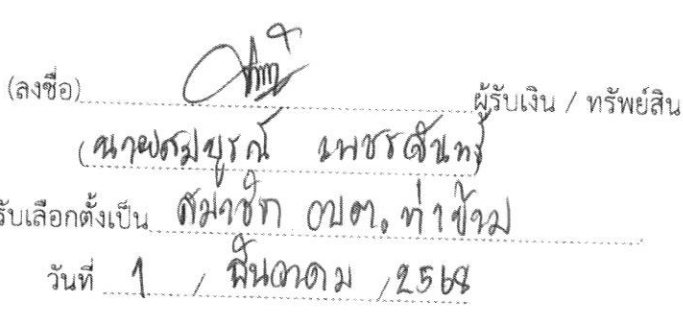 (ลงชื่อ) ผู้รับเงิน / ทรัพย์สิน
(นายสมบูรณ์ เพชรจันทร์
รับเลือกตั้งเป็น สมาชิก อบต. ท่าข้าม
วันที่ 1 / ธันวาคม / 2568